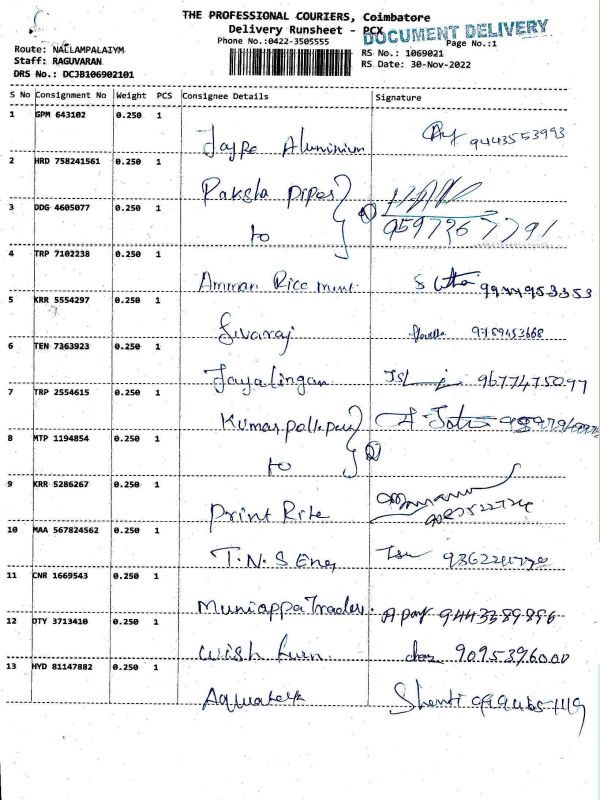 THE PROFESSIONAL COURIERS, Coimbatore
Delivery Runsheet - PCX
DOCUMENT DELIVERY
Phone No.:0422-3505555
Page No.:1
Route: NALLAMPALAIYM
RS No.: 1069021
Staff: RAGUVARAN
RS Date: 30-Nov-2022
DRS No.: DC3B106902101
S No Consignment No Weight PCS Consignee Details Signature
1 GPM 643102 0.250 1
Aluminium 9443553993
2 HRD 758241561 0.250 1
Paksha Pipes
3 DDG 4605077 0.250 1
to
4 TRP 7102238 0.250 1
Amman Rice
5 KRR 5554297 0.250 1
Sivaraj 9789453668
6 TEN 7363923 0.250 1
Jayalingan 9677475097
7 TRP 2554615 0.250 1
8 MTP 1194854 0.250 1
to
9 KRR 5286267 0.250 1
Print Rite
10 MAA 567824562 0.250 1
T.N.S Eng
11 CNR 1669543 0.250 1
Muniappa Traders. 9443389896
12 DTY 3713410 0.250 1
Wish Furn. 9095396000
13 HYD 81147882 0.250 1
Shanti